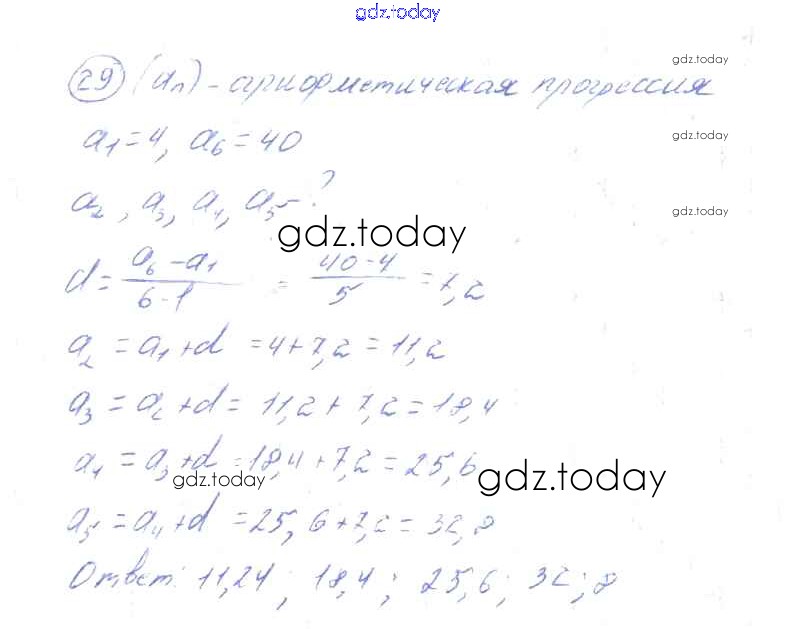 gdz.today
gdz.today
29 (an) - арифметическая прогрессия
a1=4, a6=40
gdz.today
a2, a3, a4, a5-?
gdz.today
gdz.today
d= a6-a1 / 6-1 = 40-4 / 5 = 7,2
a2 = a1+d = 4+7,2 = 11,2
a3 = a2+d = 11,2+7,2=18,4
a4 = a3+d = 18,4+7,2=25,6
gdz.today
gdz.today
a5 = a4+d = 25,6+7,2= 32,8
Ответ: 11,24; 18,4; 25,6; 32;8